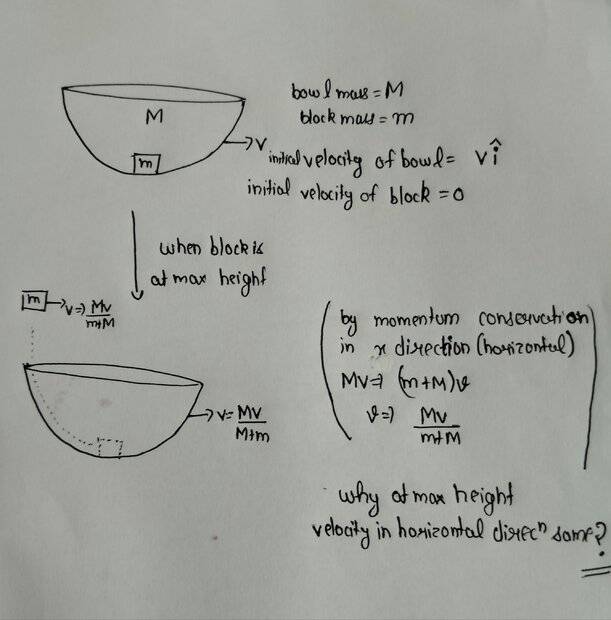 bowl mass = M
block mass = m
M
m
→V
initial velocity of bowl = v î
initial velocity of block = 0
when block is
at max height
m →V⇒ Mv/m+M
→V= MV/M+m
by momentum conservation
in x direction (horizontal)
MV⇒ (m+M)v
v⇒ Mv/m+M
why at max height
velocity in horizontal direcⁿ same?